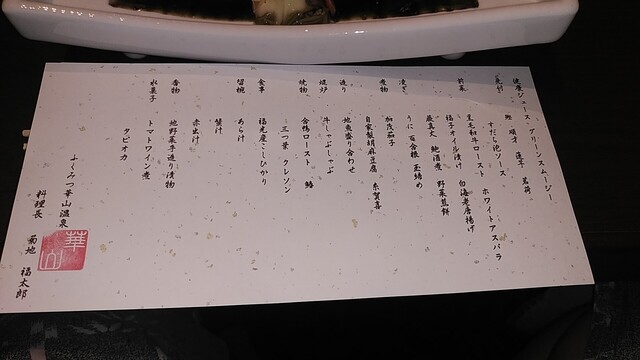 健康ジュース グリーンスムージー
先付 鱧 順才 蓮子 茗荷
すだち泡ソース
前菜 黒毛和牛ロースト ホワイトアスパラ
福子オイル漬け 白海老唐揚げ
蚕真丈 鮑酒煮 野菜煎餅
凌ぎ うに 百合根 茶巾
煮物 加茂茄子
自家製胡麻豆腐 糸賀喜
造り 地魚盛り合わせ
焜炉 牛しゃぶしゃぶ
焼物 合鴨ロースト 鰆
三つ葉 クレソン
食事 福光産こしひかり
留椀 あらけ
蟹汁
赤出汁
香物 地野菜手造り漬物
水菓子 トマトワイン煮
タピオカ
ふくみつ華山温泉
料理長 菊地 福太郎
華山